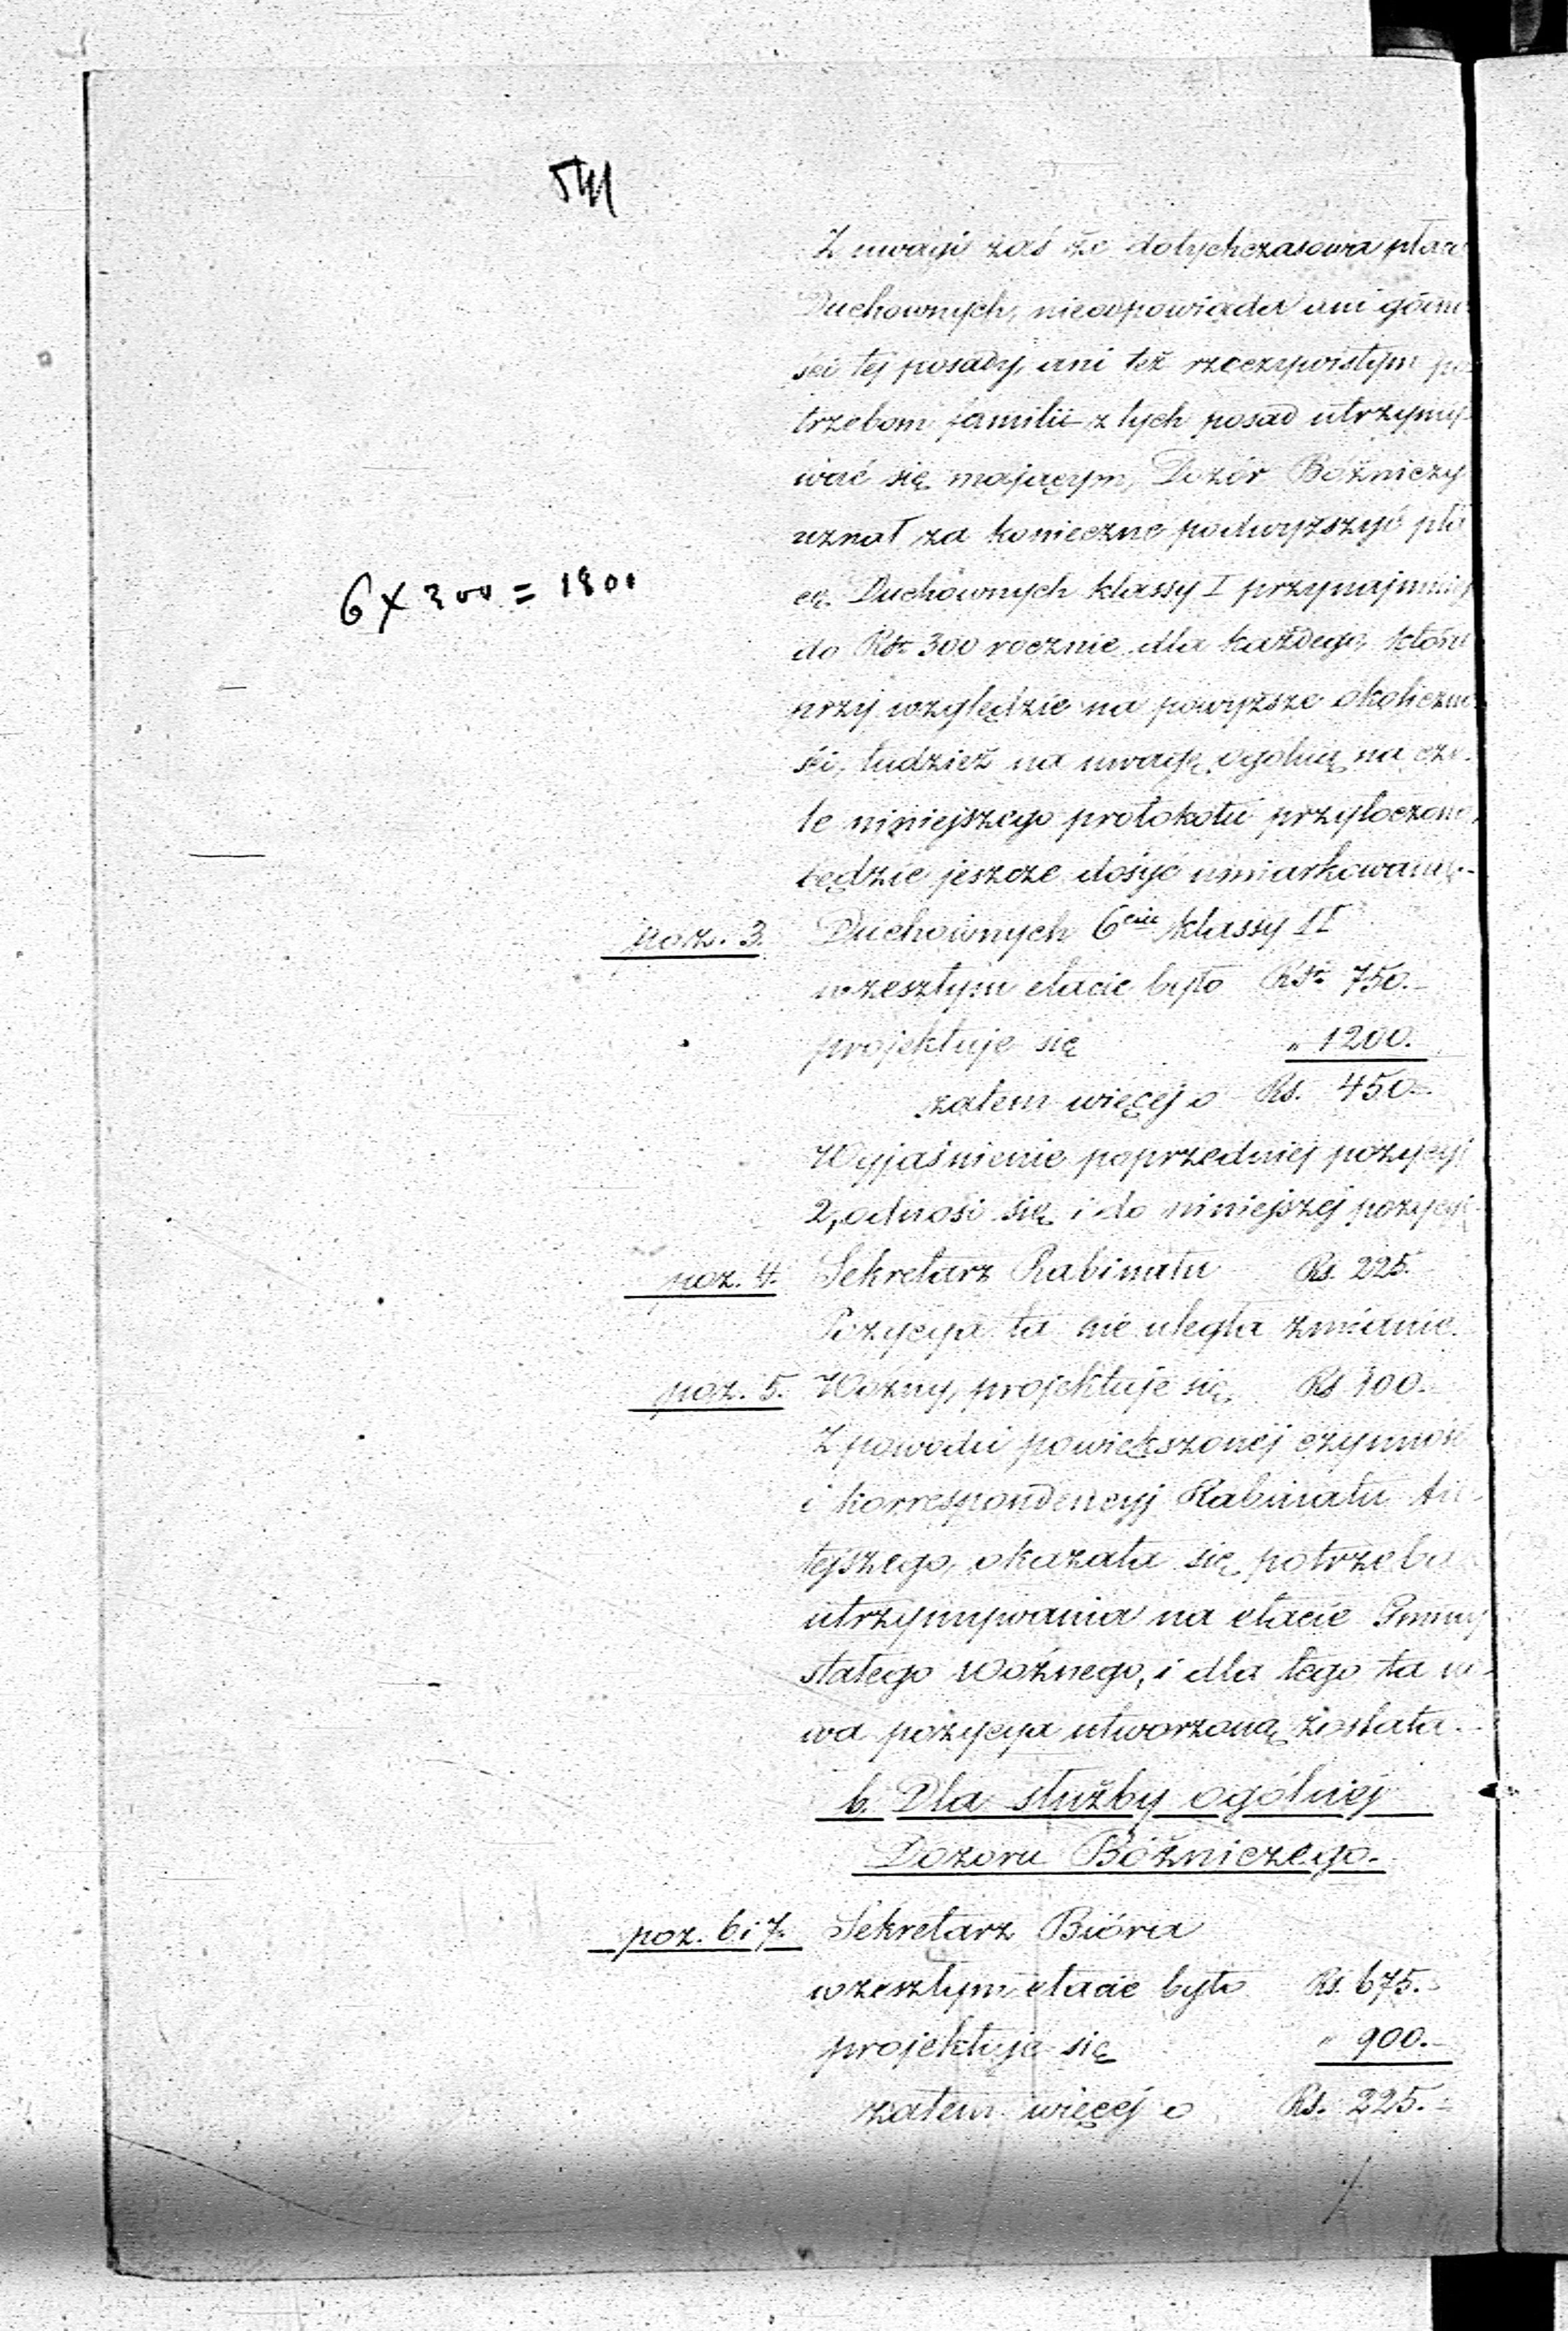 541
Z uwagi zaś że dotychczasowa płac
Duchownych, nieodpowiada ani górno
ści tej posady, ani też rzeczywistym po
trzebom familii z tych posad utrzymy
wać się mającym, Dozór Bóżniczy
uznał za konieczne podwyższyć pła
cę Duchownych klassy I przynajmniej
6 x 300 = 1800
do Rsr 300 rocznie dla każdego, która
przy względzie na powyższe okoliczno
ści, tudzież na uwagę ogólną na cze-
le niniejszego protokołu przytoczoną,
będzie jeszcze dosyć umiarkowaną.-
poz. 3. Duchownych 6ciu klassy II
w zeszłym etacie było Rsr 750.-
projektuje się " 1200.
zatem więcej o Rs. 450.-
Wyjaśnienie poprzedniej pozycyi
2, odnosi się i do niniejszej pozycyi.
poz. 4. Sekretarz Rabinatu Rs. 225.
Pozycya ta nie uległa zmianie.
poz. 5. Woźny, projektuje się Rs 100.-
Z powodu powiększonej czynnośc
i korrespondencyj Rabinatu tu-
tejszego, okazała się potrzeba
utrzymywania na etacie Gminy
stałego woźnego, i dla tego ta no-
wa pozycya utworzoną została.-
b. Dla służby ogólnej
Dozoru Bóżniczego.-
poz. 6 i 7. Sekretarz Bióra
w zeszłym etacie było Rs. 675.-
projektuje się " 900.-
zatem więcej o Rs. 225.-